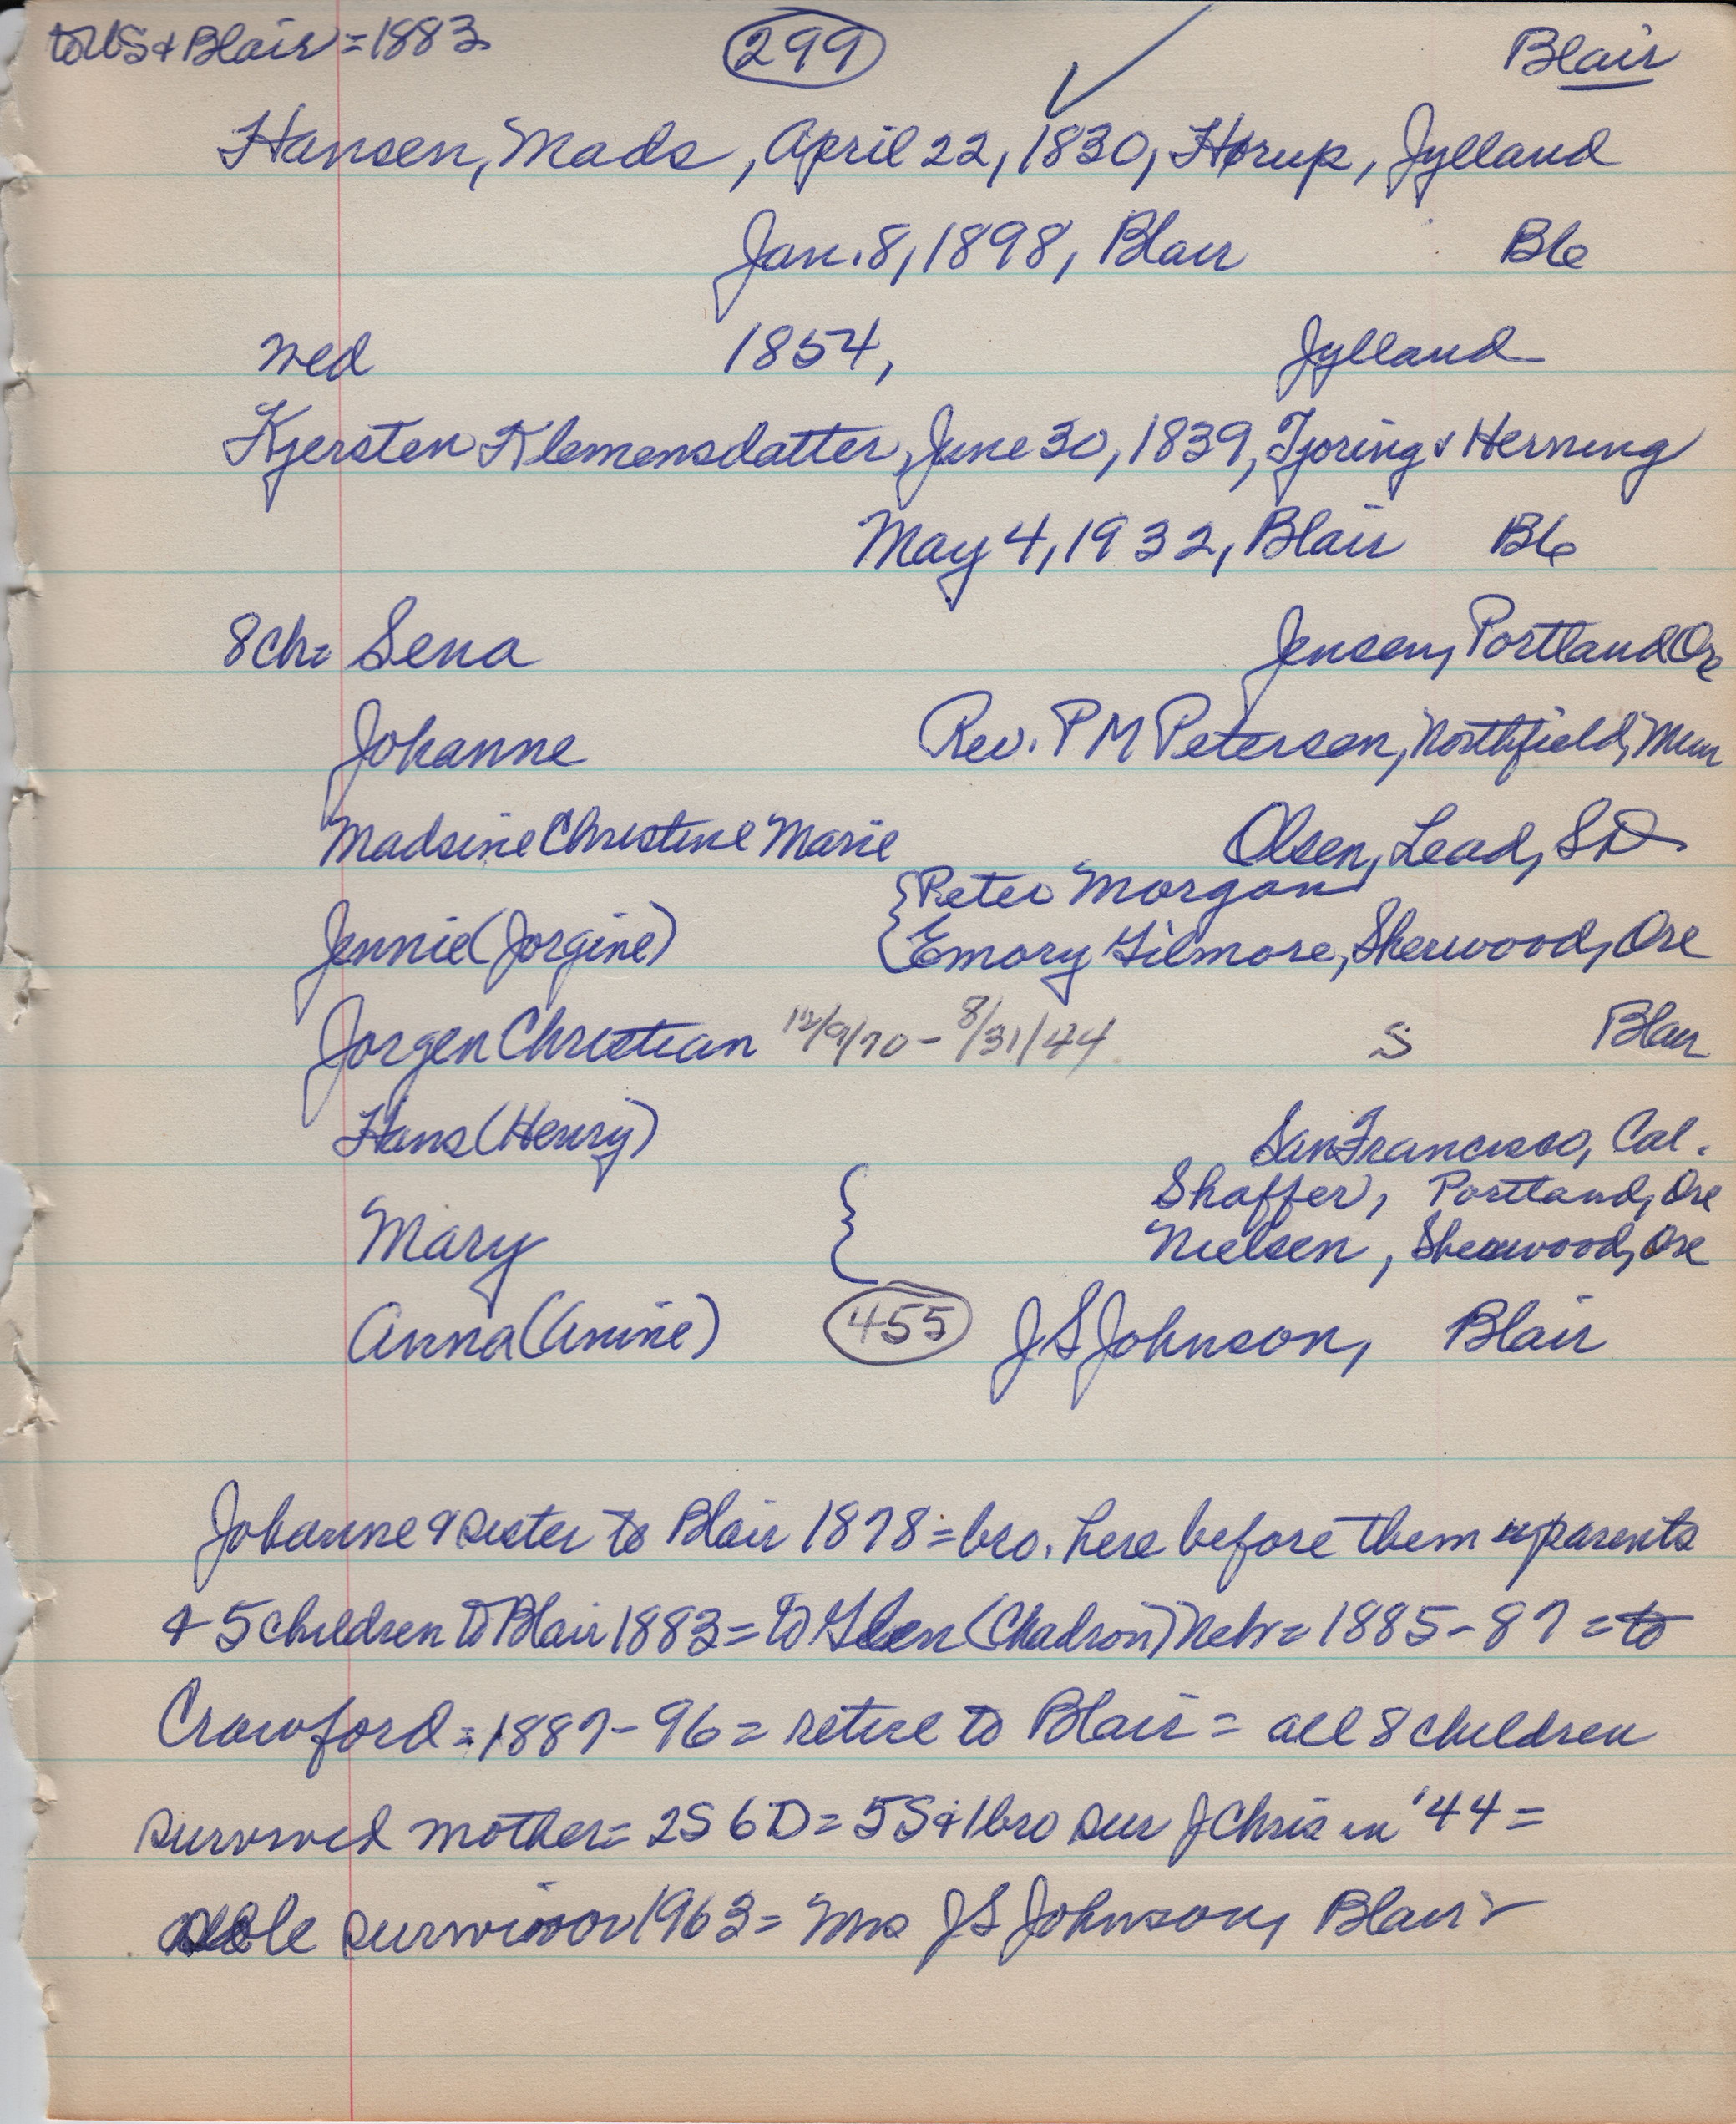 to US & Blair = 1883 299 Blair
Hansen, Mads, April 22, 1830, Hørup, Jylland
Jan. 8, 1898, Blair Blc
wed 1854, Jylland
Kjersten Klemensdatter, June 30, 1839, Tjoring & Herning
May 4, 1932, Blair Blc
8 ch = Sena Jensen, Portland Ore
Johanne Rev. P M Petersen, Northfield, Minn
Madsine Christine Marie Olsen, Lead, SD
{Peter Morgan
Jennie (Jorgine) {Emory Gilmore, Sherwood, Ore
Jorgen Christian 12/9/70 - 8/31/44 S Blair
Hans (Henry) San Francisco, Cal.
Shaffer, Portland, Ore
Mary { Nielsen, Sherwood, Ore
Anna (Anine) 455 J S Johnson, Blair
Johanne & sister to Blair 1878 = bro. here before them = parents
& 5 children to Blair 1883 = to Glen (Chadron) Nebr = 1885 - 87 = to
Crawford = 1887 - 96 = retire to Blair = all 8 children
survived mother = 2S 6D = 5S & 1 bro sur J Chris in '44 =
sole survivor 1963 = Mrs J S Johnson, Blair